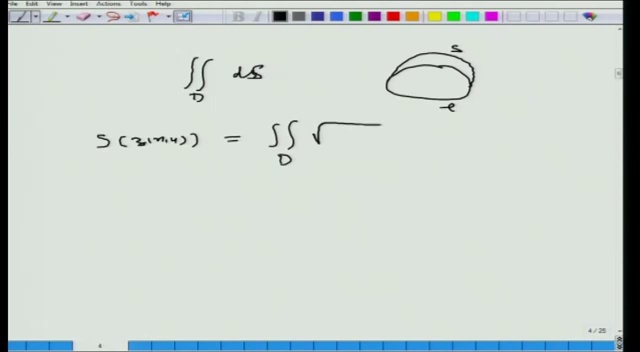 File Edit View Insert Actions Tools Help
B I
∬_D dS
S
S(z,x,y)) = ∬_D √
4 / 25
4